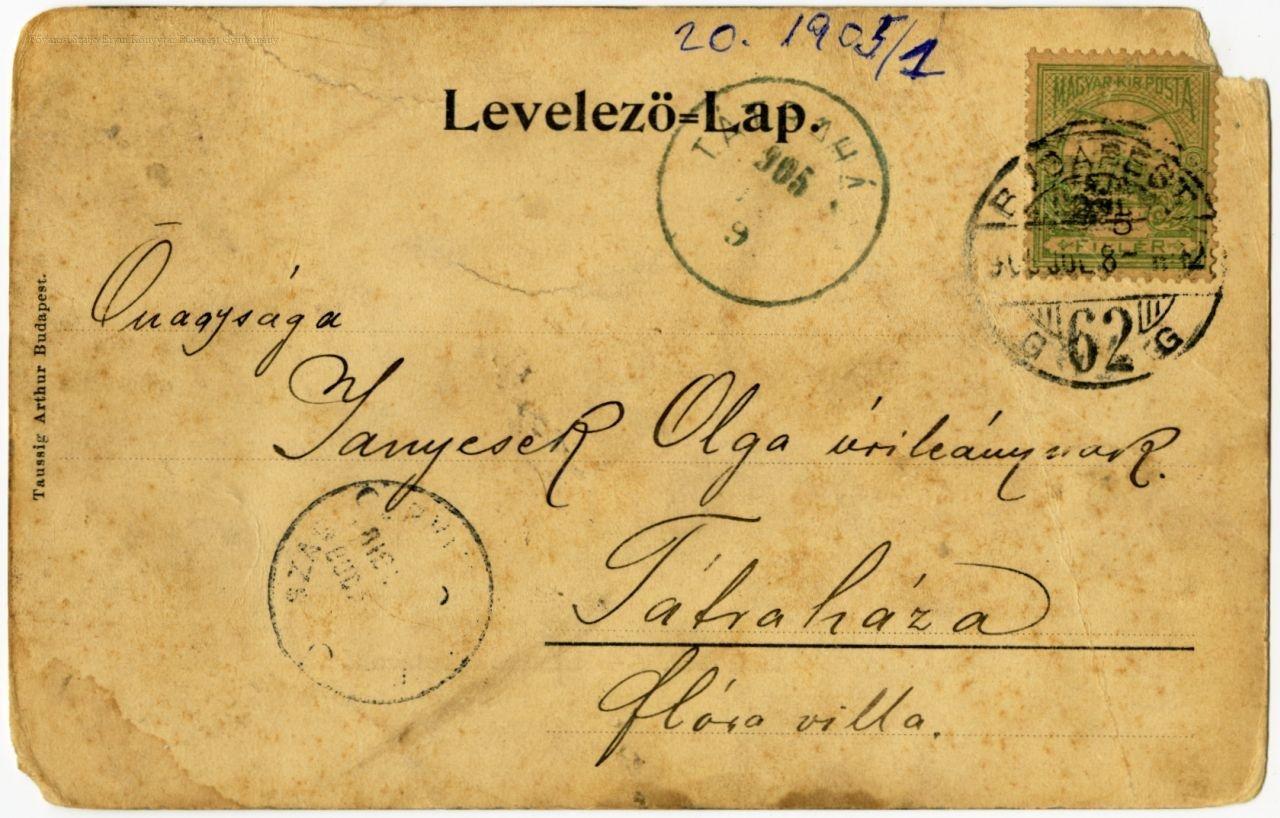 Fővárosi Szabó Ervin Könyvtár Budapest Gyűjtemény
20. 1905/1
Levelező=Lap.
MAGYAR·KIR·POSTA
5
FILLÉR
BUDAPEST
62
905
9
Taussig Arthur Budapest.
Őnagysága
Janyesek Olga úrileánynak.
Tátraháza
flóra villa.